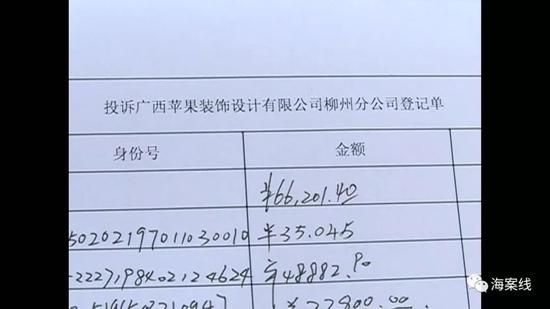 投诉广西苹果装饰设计有限公司柳州分公司登记单
身份号 金额
¥66,201.40
50202197011030010 ¥35.045
2227198402124624 ¥48882.80
¥22800.00
海案线